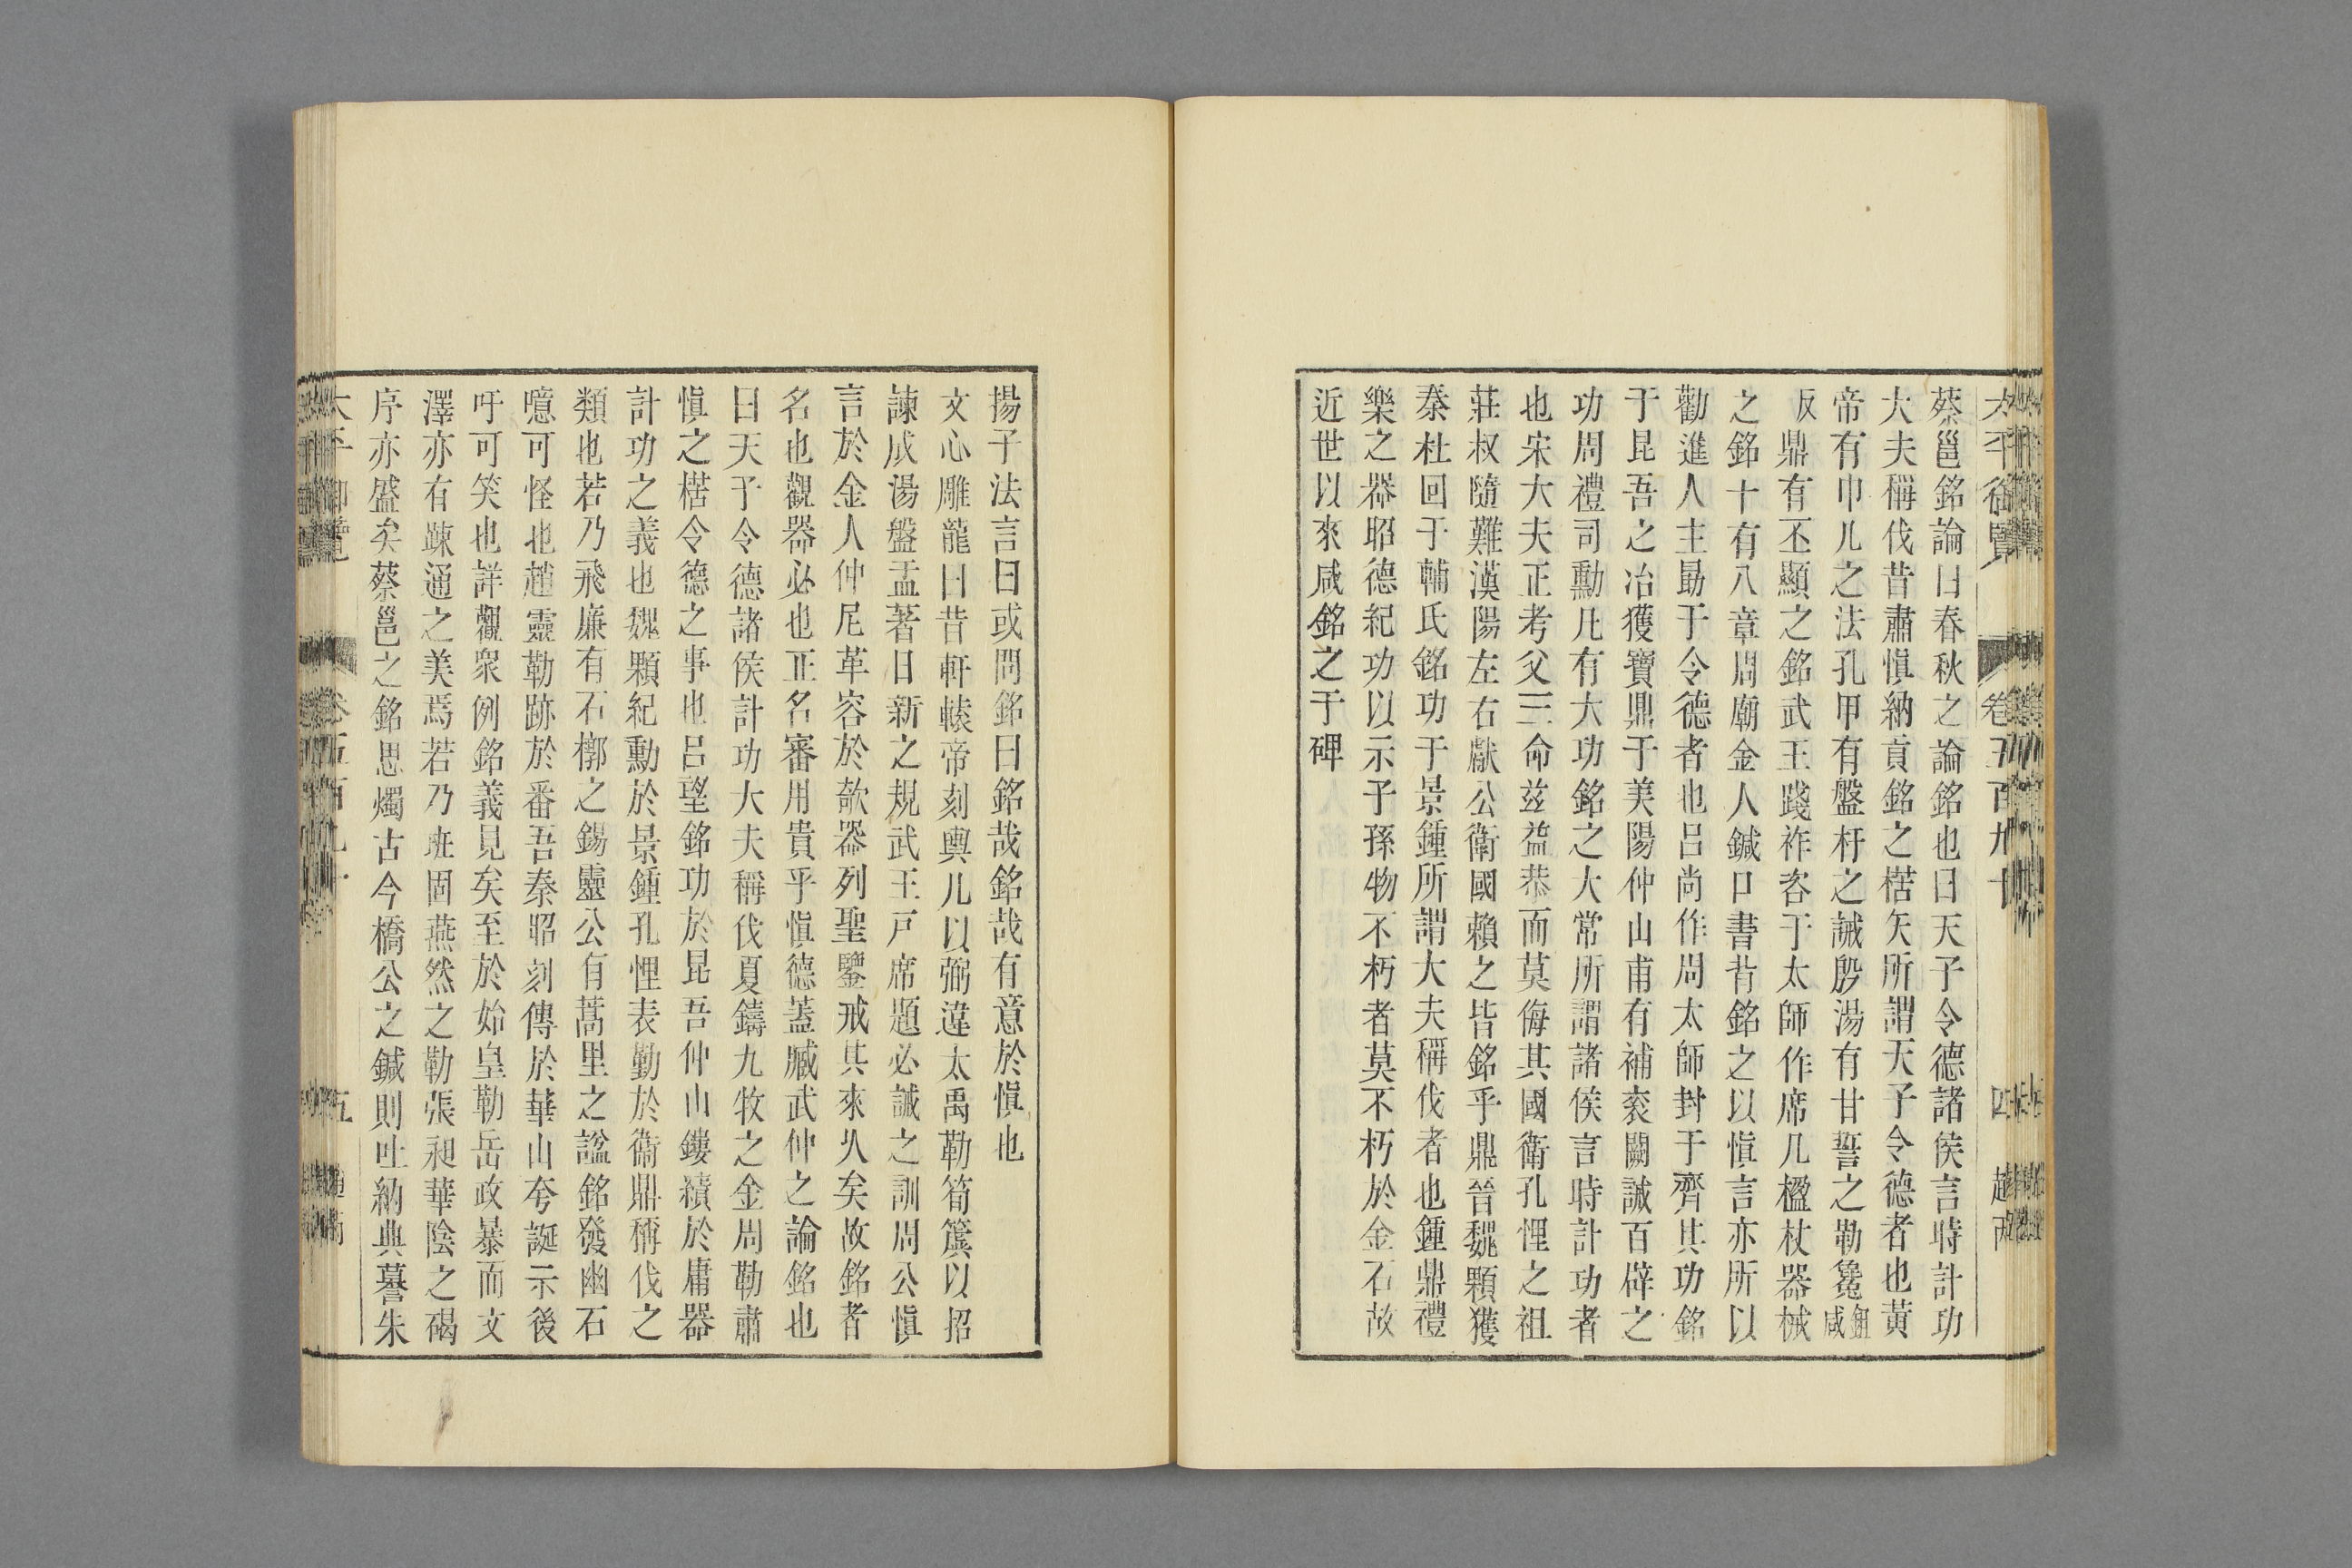 太平御覽 卷五百九十 四 趙丙
蔡邕銘論曰春秋之論銘也曰天子令德諸侯言時計功
大夫稱伐昔肅愼納貢銘之楛矢所謂天子令德者也黃
帝有巾几之法孔甲有盤杅之誡殷湯有甘誓之勒毚鉏咸
㕮鼎有丕顯之銘武王踐祚咨于太師作席几楹杖器械
之銘十有八章周廟金人鍼口書背銘之以愼言亦所以
勸進人主勗于令德者也呂尚作周太師封于齊其功銘
于昆吾之冶獲寶鼎于美陽仲山甫有補衮闕誠百辟之
功周禮司勳凡有大功銘之大常所謂諸侯言時計功者
也宋大夫正考父三命兹益恭而莫侮其國衛孔悝之祖
莊叔隨難漢陽左右獻公衛國賴之皆銘乎鼎晉魏顆獲
秦杜回于輔氏銘功于景鍾所謂大夫稱伐者也鍾鼎禮
樂之器昭德紀功以示子孫物不朽者莫不朽於金石故
近世以來咸銘之于碑
揚子法言曰或問銘曰銘哉銘哉有意於愼也
文心雕龍曰昔軒轅帝刻輿几以弼違太禹勒筍簴以招
諫成湯盤盂著日新之規武王戸席題必誡之訓周公愼
言於金人仲尼革容於欹器列聖鑒戒其來久矣故銘者
名也觀器必也正名審用貴乎愼德蓋臧武仲之論銘也
曰天子令德諸侯計功大夫稱伐夏鑄九牧之金周勒肅
愼之楛令德之事也呂望銘功於昆吾仲山鏤績於庸器
計功之義也魏顆紀勳於景鍾孔悝表勤於衞鼎稱伐之
類也若乃飛廉有石槨之錫靈公有蒿里之諡銘發幽石
噫可怪也趙靈勒跡於番吾秦昭刻傳於華山夸誕示後
吁可笑也詳觀衆例銘義見矣至於始皇勒岳政暴而文
澤亦有疎通之美焉若乃班固燕然之勒張昶華陰之碣
序亦盛矣蔡邕之銘思燭古今橋公之鍼則吐納典謩朱
太平御覽 卷五百九十 五